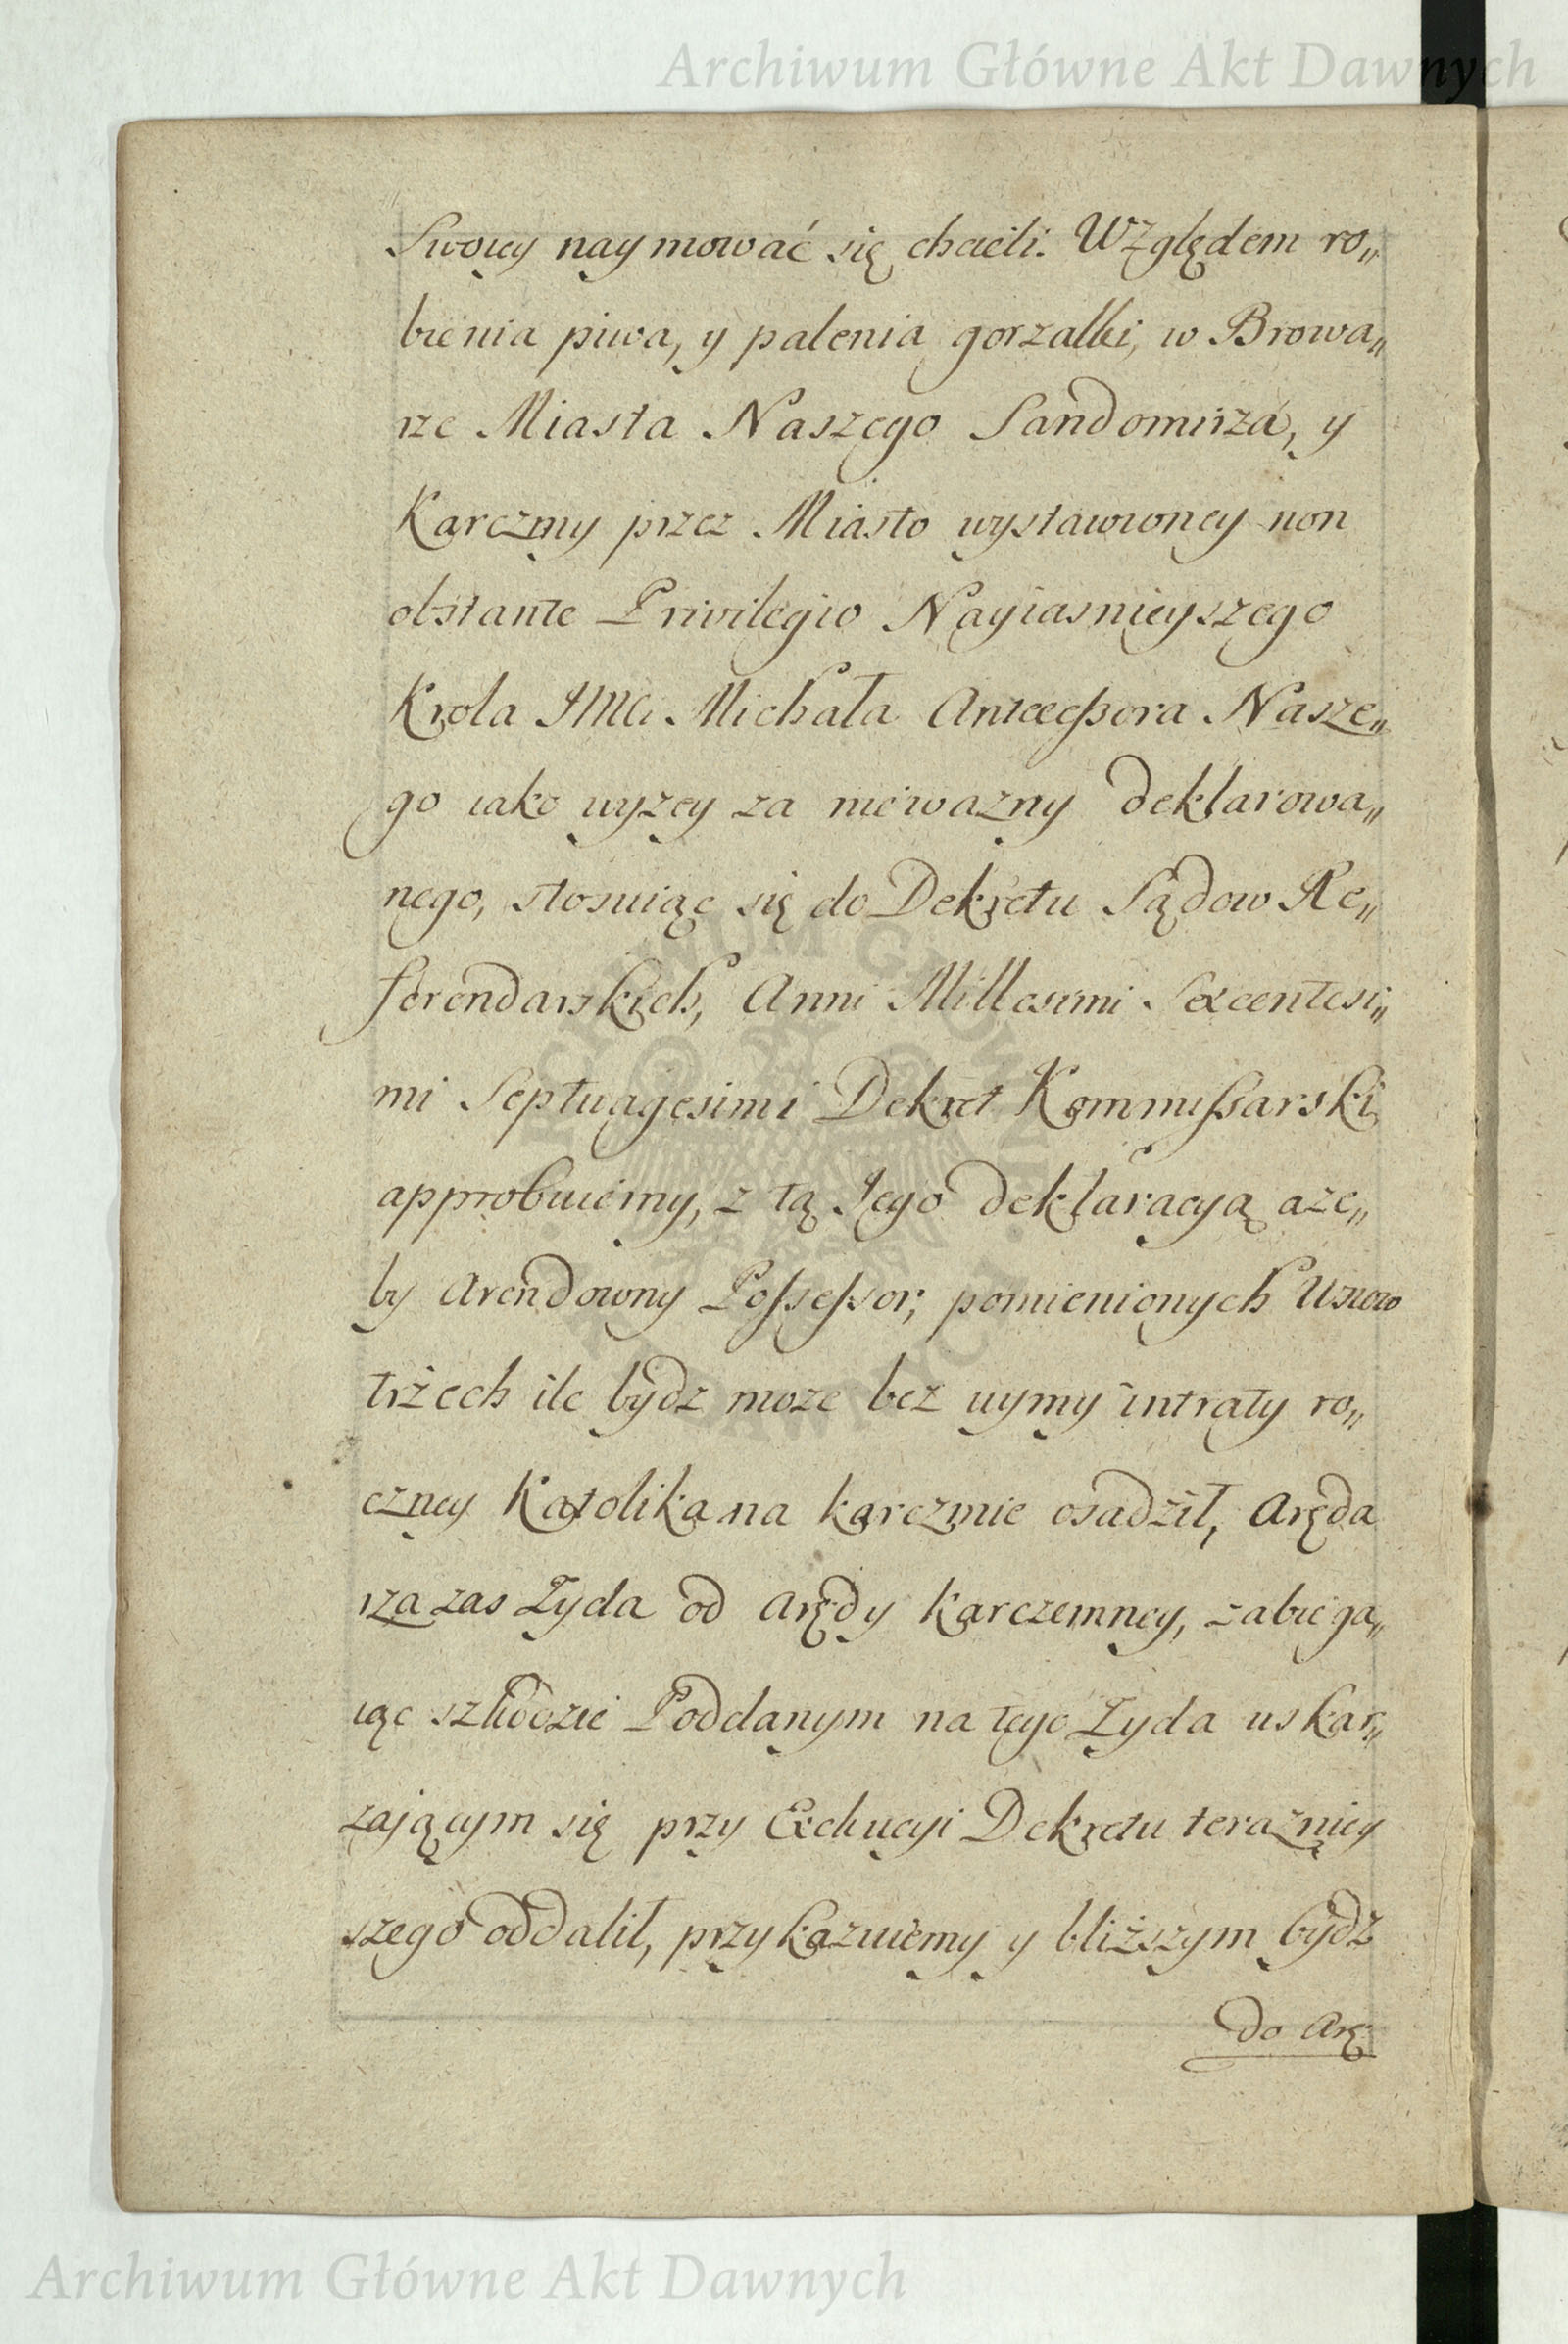 Archiwum Główne Akt Dawnych
Swoiey naymować się chcieli. Względem ro„
bienia piwa, y palenia gorzałki, w Browa„
rze Miasta Naszego Sandomirza, y
Karczmy przez Miasto wystawioney non
obstante Privilegio Nayiasnieyszego
Krola JMCi Michała Antecessora Nasze„
go iako wyzey za niewazny deklarowa„
nego, stosuiąc się do Dekretu Sądow Re„
ferendarskich, Anni Millesimi Sexcentesi„
mi Septuagesimi Dekret Kommissarski
approbuiemy, z tą Jego deklaracyą aze„
by Arendowny Possessor, pomienionych Wsiow
trzech ile bydz moze bez uymy intraty ro„
czney Katolika na karczmie osadził, Aręda
rza zas Zyda od Arędy karczemney, zabiega„
iąc szkodzie Poddanym na tego Zyda uskar„
zaiącym się przy Exekucyi Dekretu terazniey
szego oddalił, przykazuiemy y bliższym bydz
do Arę
Archiwum Główne Akt Dawnych